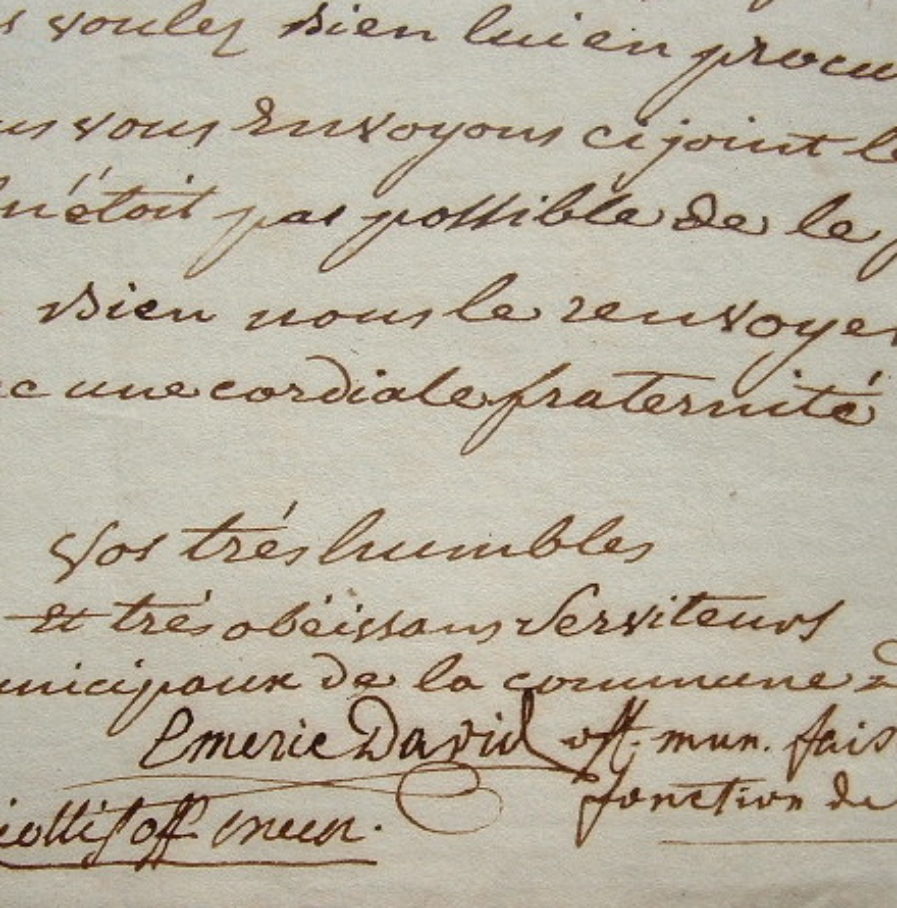 s voulez bien lui en procu
us vous Envoyons ci joint le
n'étoit pas possible de le p
bien nous le renvoyer
c une cordiale fraternité
Vos trés humbles
Et trés obéissans Serviteurs
unicipaux de la commune d
Emeric David off. mun. fais
fonction de
off mun.